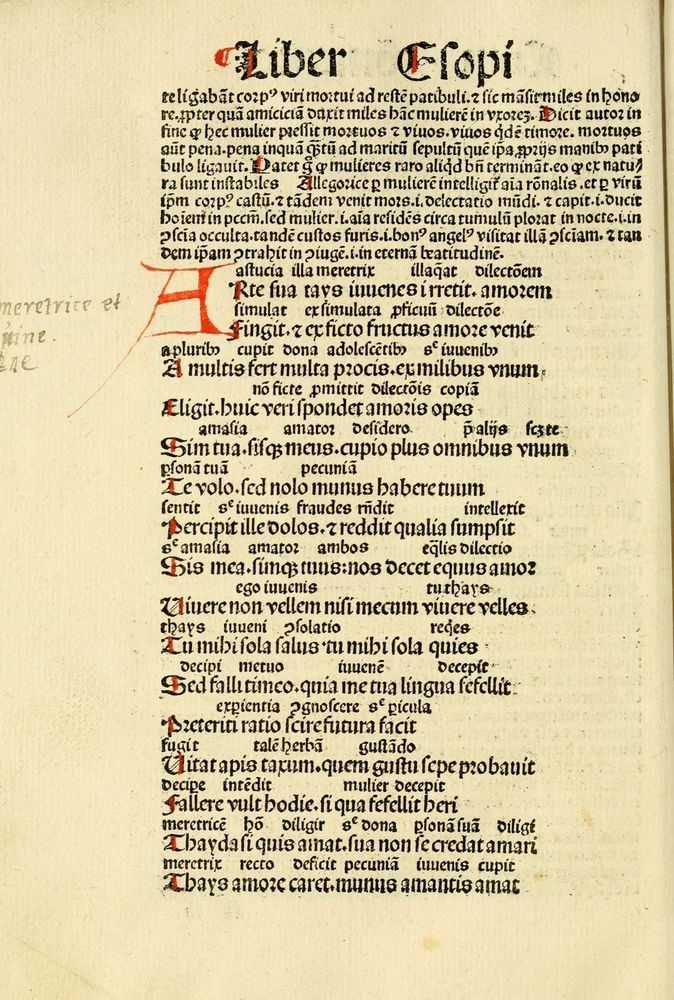 Liber Esopi
te ligabãt corpꝰ viri mortui ad restẽ patibuli. ⁊ sic mãsit miles in hono
re. ꝓpter quã amiciciã duxit miles hãc mulierẽ in vxoreꝫ. Dicit autor in
fine ꝙ hec mulier pressit mortuos ⁊ viuos. viuos qͥdẽ timore. mortuos
aũt pena. pena inquã qͣꝫtũ ad maritũ sepultũ quẽ ip̃a ꝓprijs manibꝰ pati
bulo ligauit. Patet ꝙ mulieres raro aliqͥd bñ terminãt. eo ꝙ ex natu/
ra sunt instabiles Allegorice ꝑ mulierẽ intelligiť aĩa rõnalis. et ꝑ virũ
ip̃m corpꝰ castũ. ⁊ tãdem venit mors .i. delectatio mũdi. ⁊ capit .i. ducit
hoiem in pecc̃m. sed mulier .i. aĩa residẽs circa tumulũ plorat in nocte .i. in
ꝯscĩa occulta. tandẽ custos furis .i. bonꝰ angelꝰ visitat illã ꝯsciam. ⁊ tan
dem ip̃am ꝯtrahit in ꝯiugẽ .i. in eternã beatitudinẽ.
astucia illa meretrix illaq̃at dilectõem
ARte sua tays iuuenes irretit. amorem
meretrice et
simulat ex simulata ꝓficuũ dilectõe
Fingit. ⁊ ex ficto fructus amore venit
a pluribꝰ cupit dona adolescẽtibꝰ sᶜ iuuenibꝰ
A multis fert multa procis. ex milibus vnum.
nõ ficte ꝓmittit dilectõis copiã
Eligit. huic veri spondet amoris opes
amasia amator desidero p̃ alijs
Sim tua. sisqꝫ meus. cupio plus omnibus vnum
ꝑsonã tuã pecuniã
Te volo. sed nolo munus habere tuum
sentit sᶜ iuuenis fraudes rñdit intellexit
Percipit ille dolos. ⁊ reddit qualia sumpsit
sᶜ amasia amator ambos eq̃lis dilectio
Sis mea. simqꝫ tuus: nos decet equus amor
ego iuuenis tu thays
Uiuere non vellem nisi mecum viuere velles
thays iuueni ꝯsolatio reqͥes
Tu mihi sola salus. tu mihi sola quies
decipi metuo iuuenẽ decepit
Sed falli timeo. quia me tua lingua fefellit
exꝑientia ꝯgnoscere sᶜ ꝑicula
Preteriti ratio scire futura facit
fugit talẽ herbã gustãdo
Uitat apis taxum. quem gustu sepe probauit
decipe intẽdit mulier decepit
Fallere vult hodie. si qua fefellit heri
meretricẽ hõ diligit sᶜ dona ꝑsonã suã diligi
Thayda si quis amat. sua non se credat amari
meretrix recto deficit pecuniã iuuenis cupit
Thays amore caret. munus amantis amat